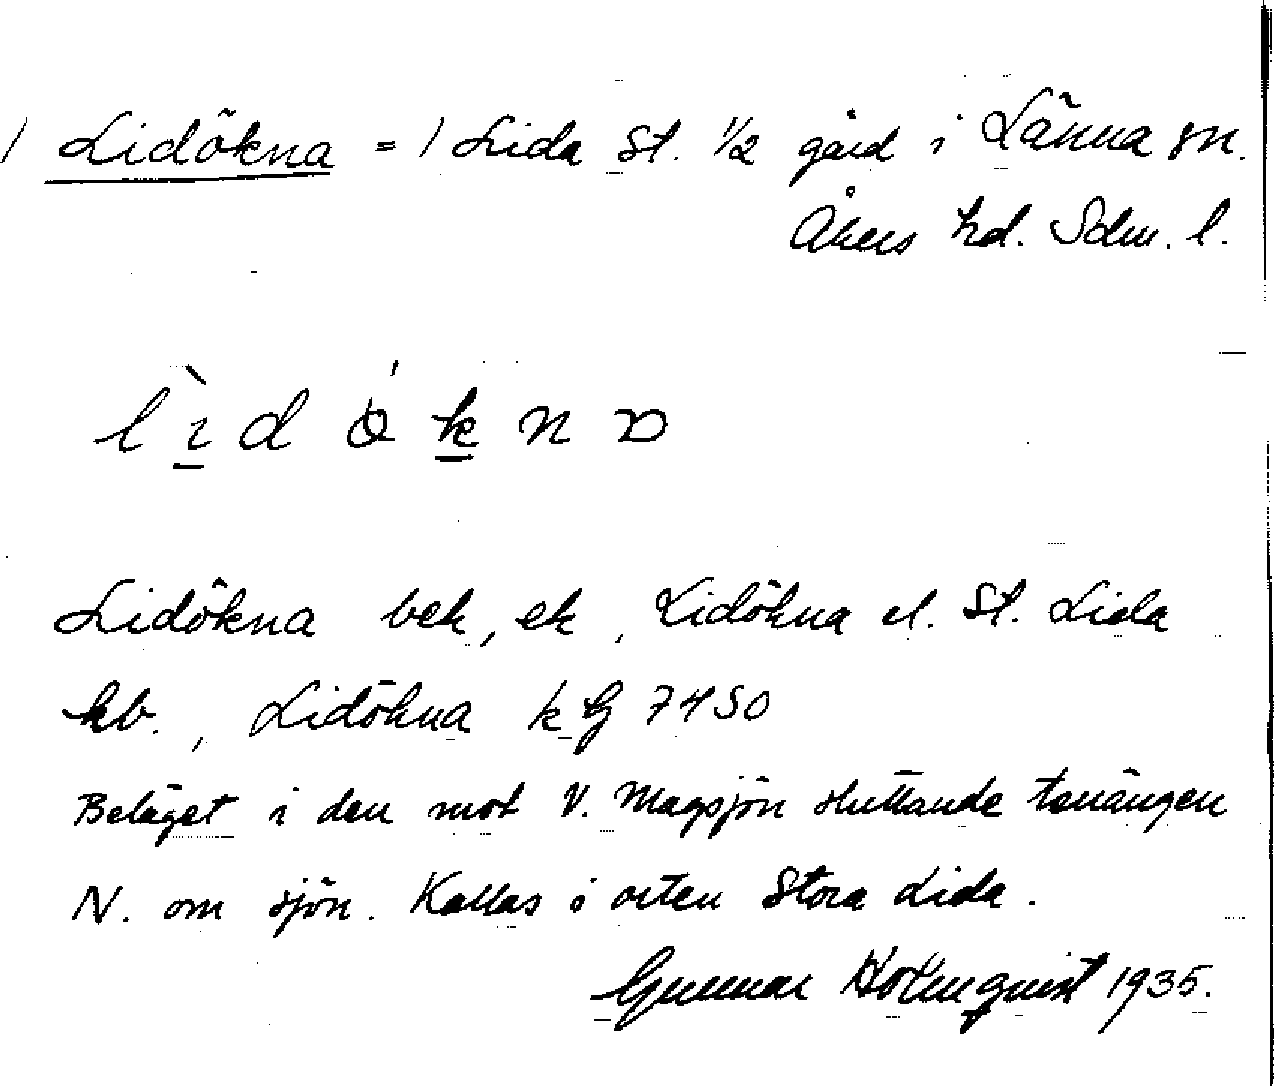 1 Lidökna = 1 Lida St. 1/2 gård i Länna sn.
Åkers hd. Sdm. l.
Lidökna bek, ek, Lidökna el. St. Lida
kb., Lidökna k G 7450
Beläget i den mot V. Magsjön sluttande terrängen
N. om sjön. Kallas i orten Stora Lida.
Gunnar Holmquist 1935.